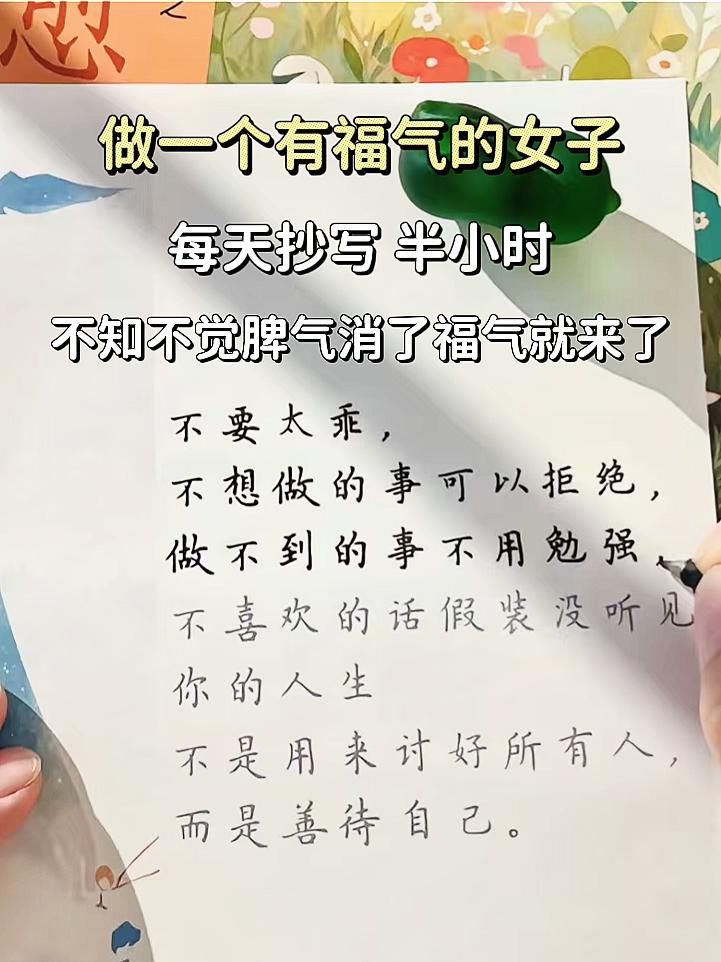 愈
做一个有福气的女子
每天抄写 半小时
不知不觉脾气消了福气就来了
不要太乖，
不想做的事可以拒绝，
做不到的事不用勉强，
不喜欢的话假装没听见
你的人生
不是用来讨好所有人，
而是善待自己。